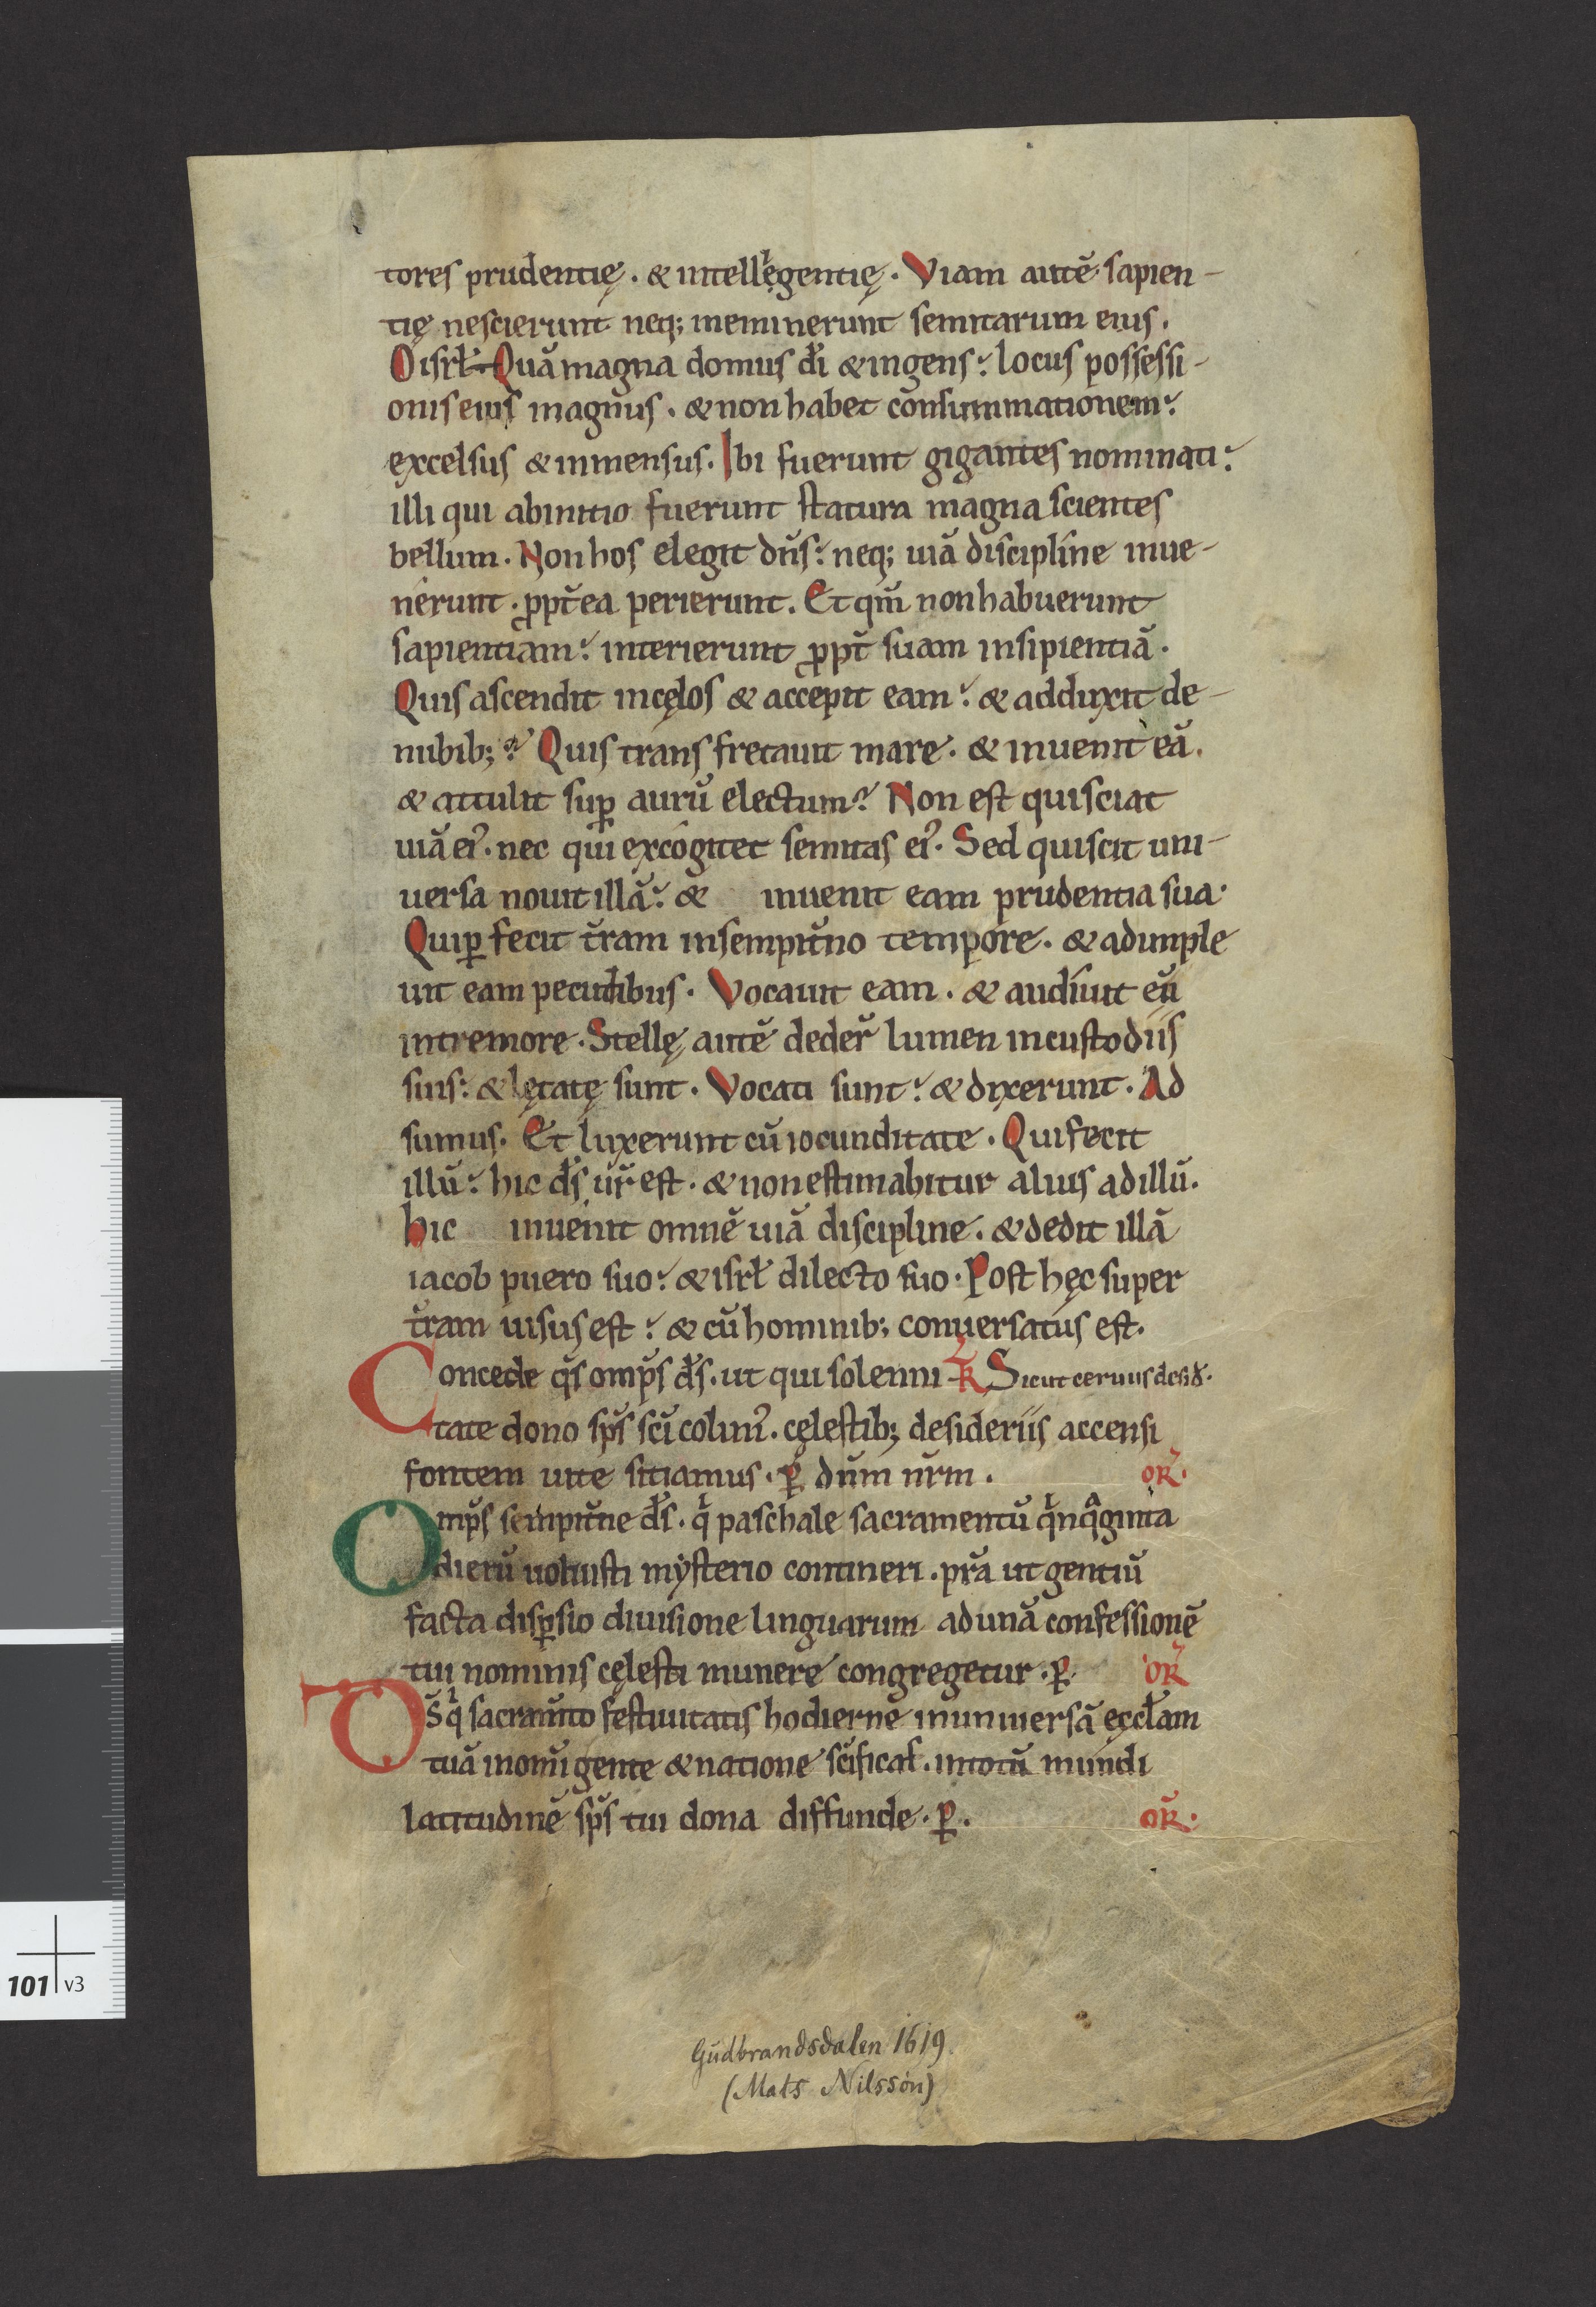 tores prudentię. & intellẹ̇gentię. Viam autē sapien-
tię nescierunt neq; meminerunt semitarum eius.
O isrł. Quā magna domus dı̄ & ingens: locus possessi-
onis eius magnus. & non habet consummationem:
excelsus & inmensus. Ibi fuerunt gigantes nominati:
illi qui abinitio fuerunt statura magna scientes
bellum. Non hos elegit dn̄s: neq; uiā discipline inue-
nerunt. ꝓpt̄ea perierunt. Et qm̄ non habuerunt
sapientiam: interierunt ꝓpt̄ suam insipientiā.
Quis ascendit incęlos & accepit eam: & adduxit de-
nubib;? Quis trans fretauit mare. & inuenit eā.
& attulit suꝑ aurū electum? Non est qui sciat
uiā ei᾿. nec qui excogitet semitas ei᾿. Sed qui scit uni-
uersa nouit illā: & inuenit eam prudentia sua.
Qui p̄fecit t̄ram insempit̄no tempore. & adimple
uit eam pecudibus. Vocauit eam. & audiuit eū
intremore. Stellę autē deder̄ lumen incustodiis
suis: & lętatę sunt. Vocati sunt: & dixerunt. Ad
sumus. Et luxerunt cū iocunditate. Qui fecit
illū: hic ds̄ ur̄ est. & non estimabitur alius adillū.
Hic inuenit omnē uiā discipline. & dedit illā
iacob puero suo: & isrł dilecto suo. Post hęc super
t̄ram uisus est: & cū hominib; conuersatus est.
Concede qs̄ omps̄ ds̄. ut qui solenni- R Sicut ceruus desid̄.
tate dono sps̄ sc̄i colim᾿. cęlestib; desideriis accensi
fontem uite sitiamus. ꝑ dn̄m nr̄m. or̄.
Omps̄ sempit̄ne ds̄. qⁱ paschale sacramentū qⁱnqᵃginta
dierū uoluisti mysterio contineri. pr̄a ut gentiū
facta disꝑsio diuisione linguarum adunā confessionē
tui nominis cęlesti munere congregetur. ꝑ or̄
Ds̄ qⁱ sacram̄to festiuitatis hodierne inuniuersā ęccłam
tuā inomī gente & natione sc̄ificas. intotū mundi
latitudinē sps̄ tui dona diffunde. ꝑ. or̄.
Gudbrandsdalen 1619.
(Mats Nilssøn)
101 v3